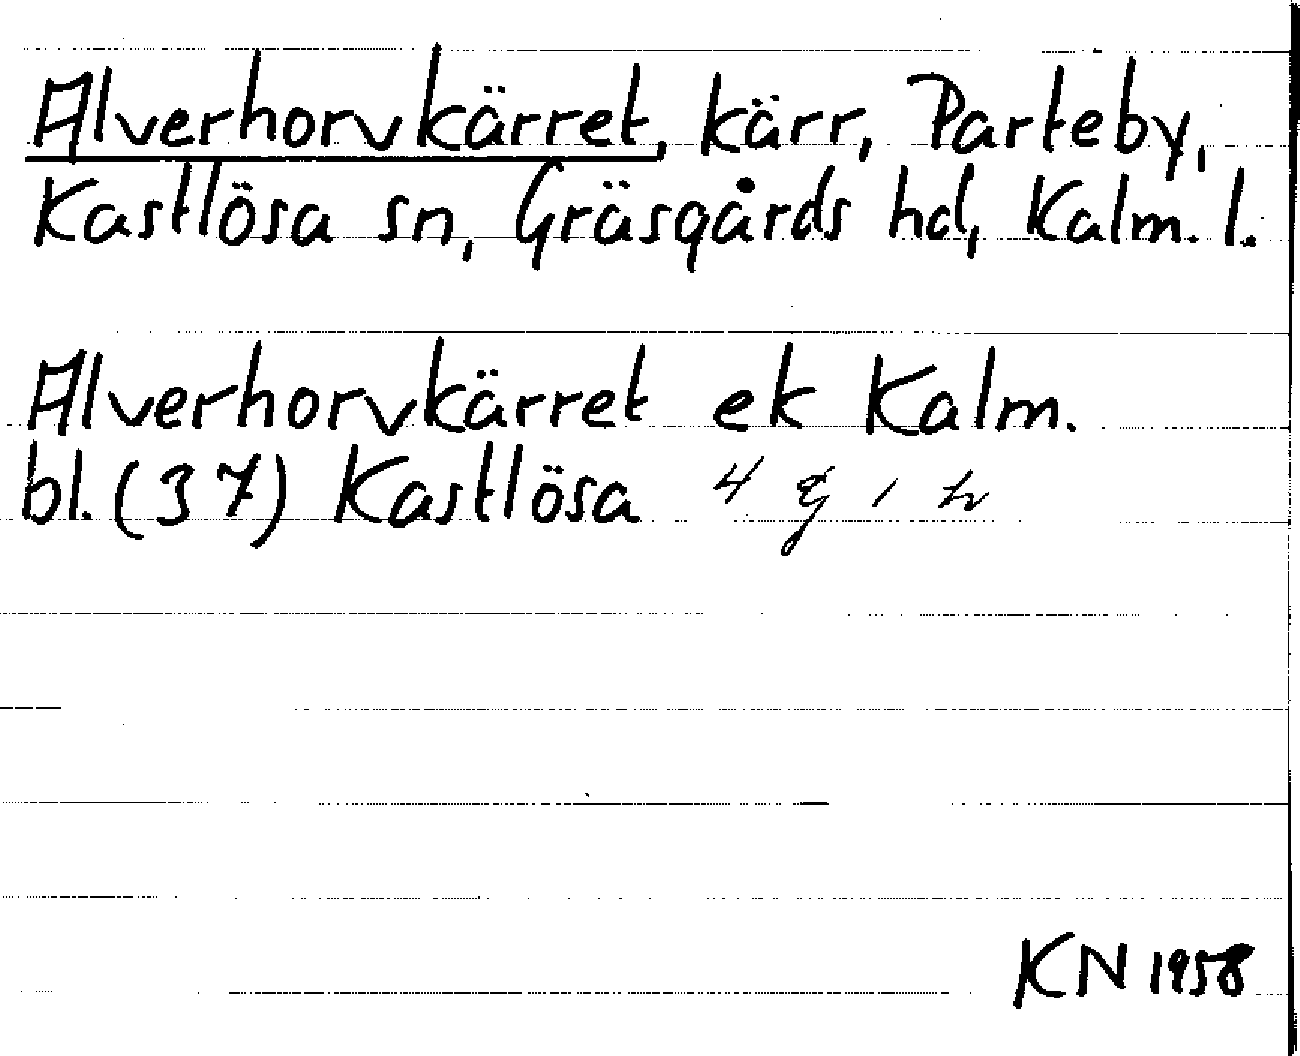 Alverhorvkärret, kärr, Parteby,
Kastlösa sn, Gräsgårds hd, Kalm. l.
Alverhorvkärret ek Kalm.
bl. (37) Kastlösa 4
KN 1958